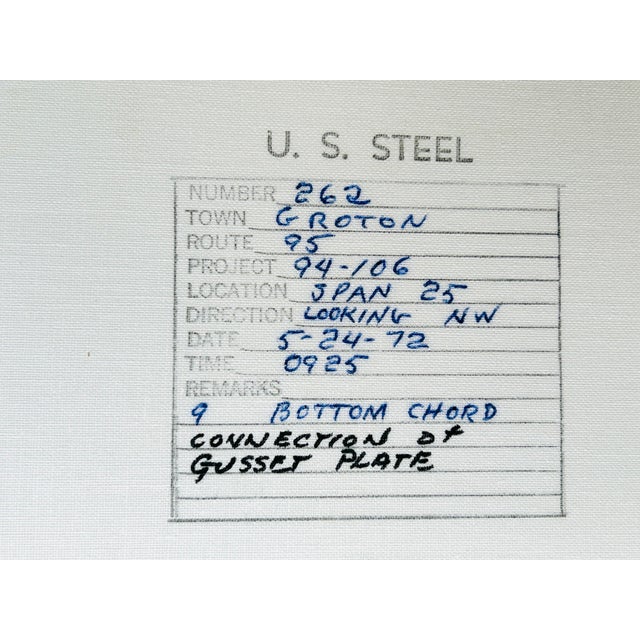 U. S. STEEL
NUMBER 262
TOWN GROTON
ROUTE 95
PROJECT 94-106
LOCATION SPAN 25
DIRECTION LOOKING NW
DATE 5-24-72
TIME 0925
REMARKS
9 BOTTOM CHORD
CONNECTION of
GUSSET PLATE